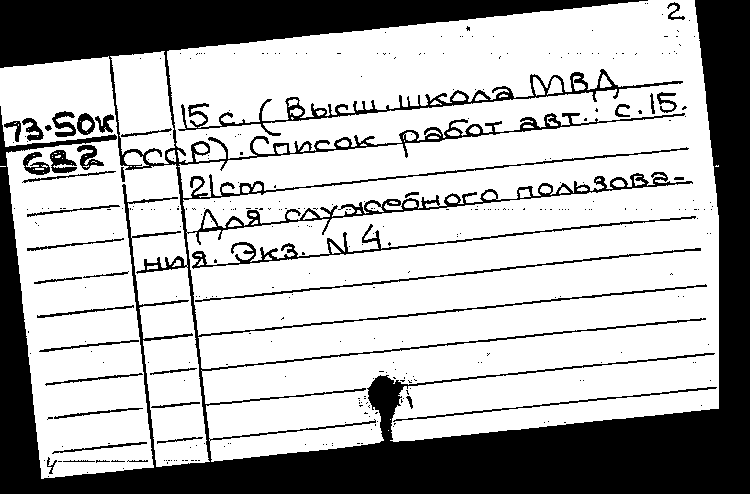 2
73-50к
682
15 с. (Высш. школа МВД
СССР). Список работ авт.: с. 15.
21cm.
Для служебного пользова-
ния. Экз. N 4.
4